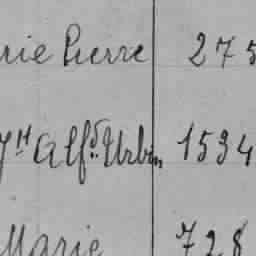 rie Pierre 275
Jh Alfd Urbin 1534
Marie 728